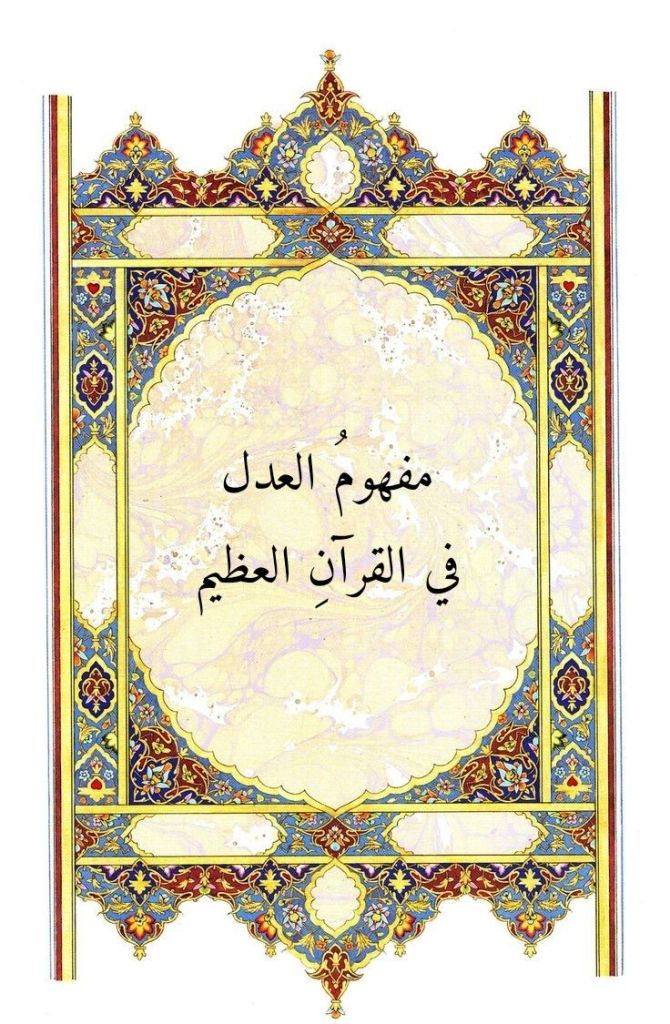 مفهومُ العدل
في القرآنِ العظيم